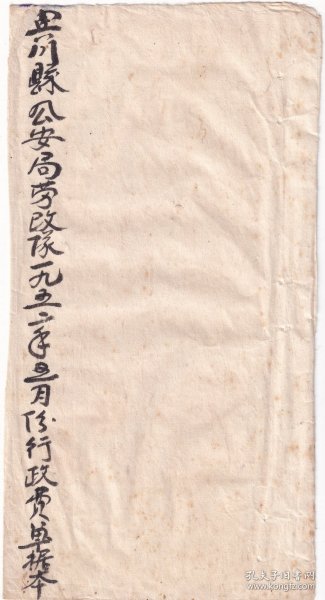 川縣公安局劳改隊一九五二年五月份行政費单据本
孔夫子旧书网
www.kongfz.com